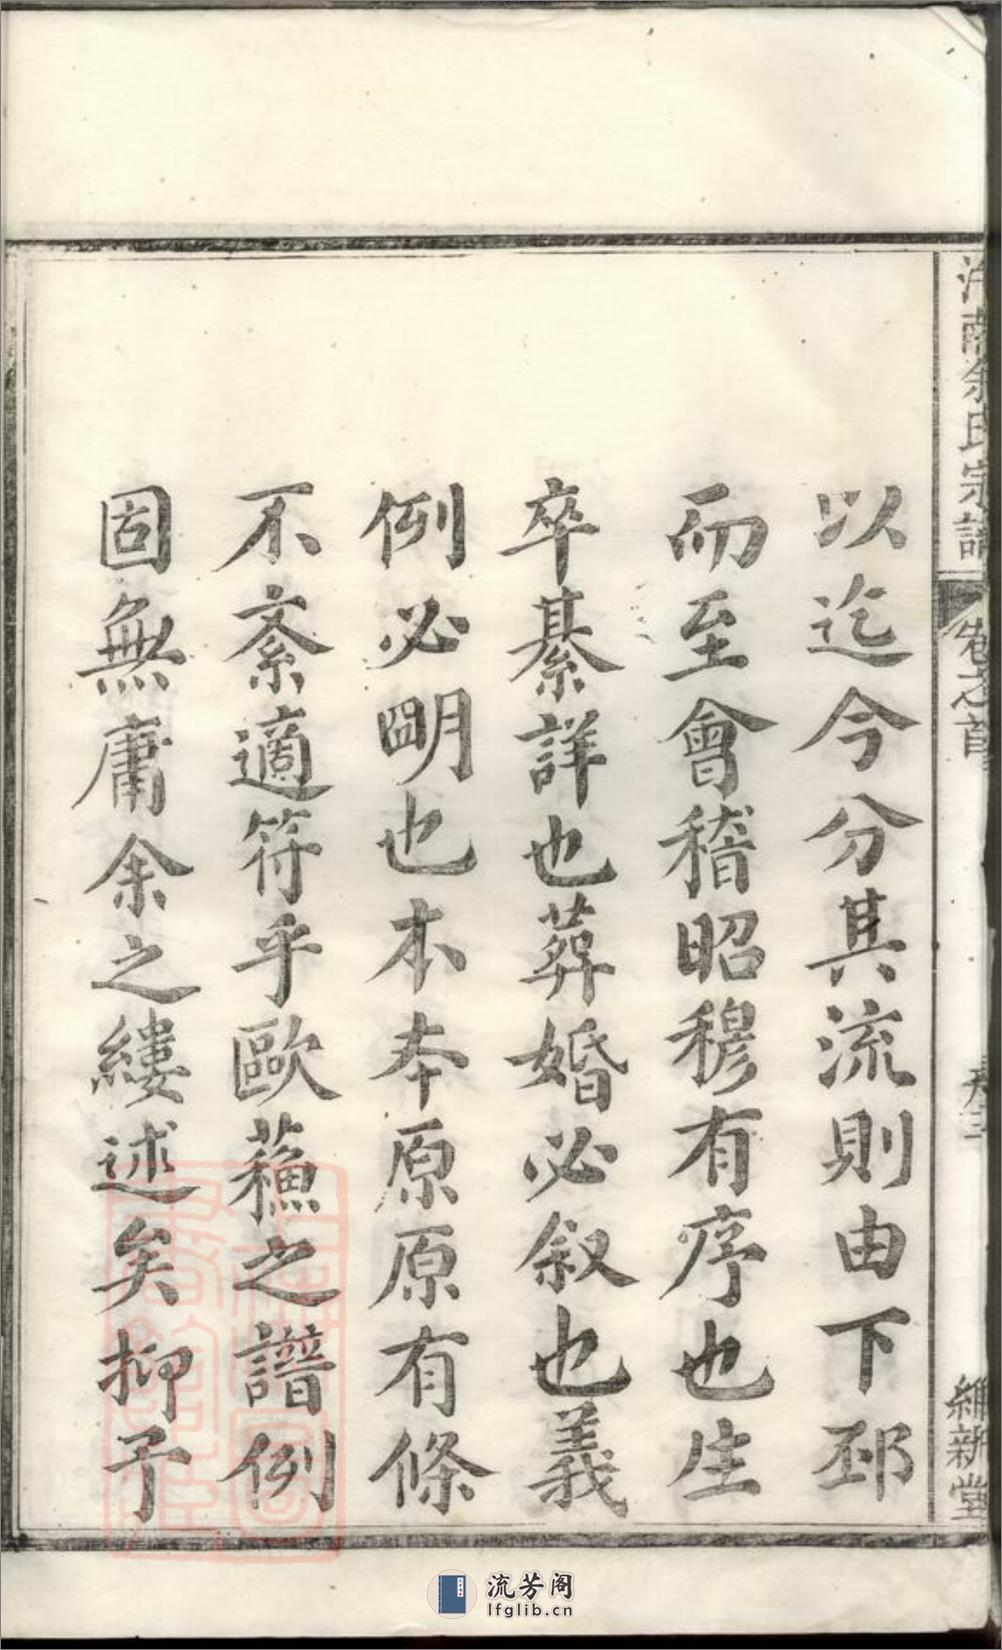 余氏宗譜
卷之首
維新堂
以迄今分其流則由下邳
而至會稽昭穆有序也生
卒綦詳也葬婚必叙也義
例必明也本本原原有條
不紊適符乎歐蘓之譜例
固無庸余之縷述矣抑予
流芳阁
lfglib.cn